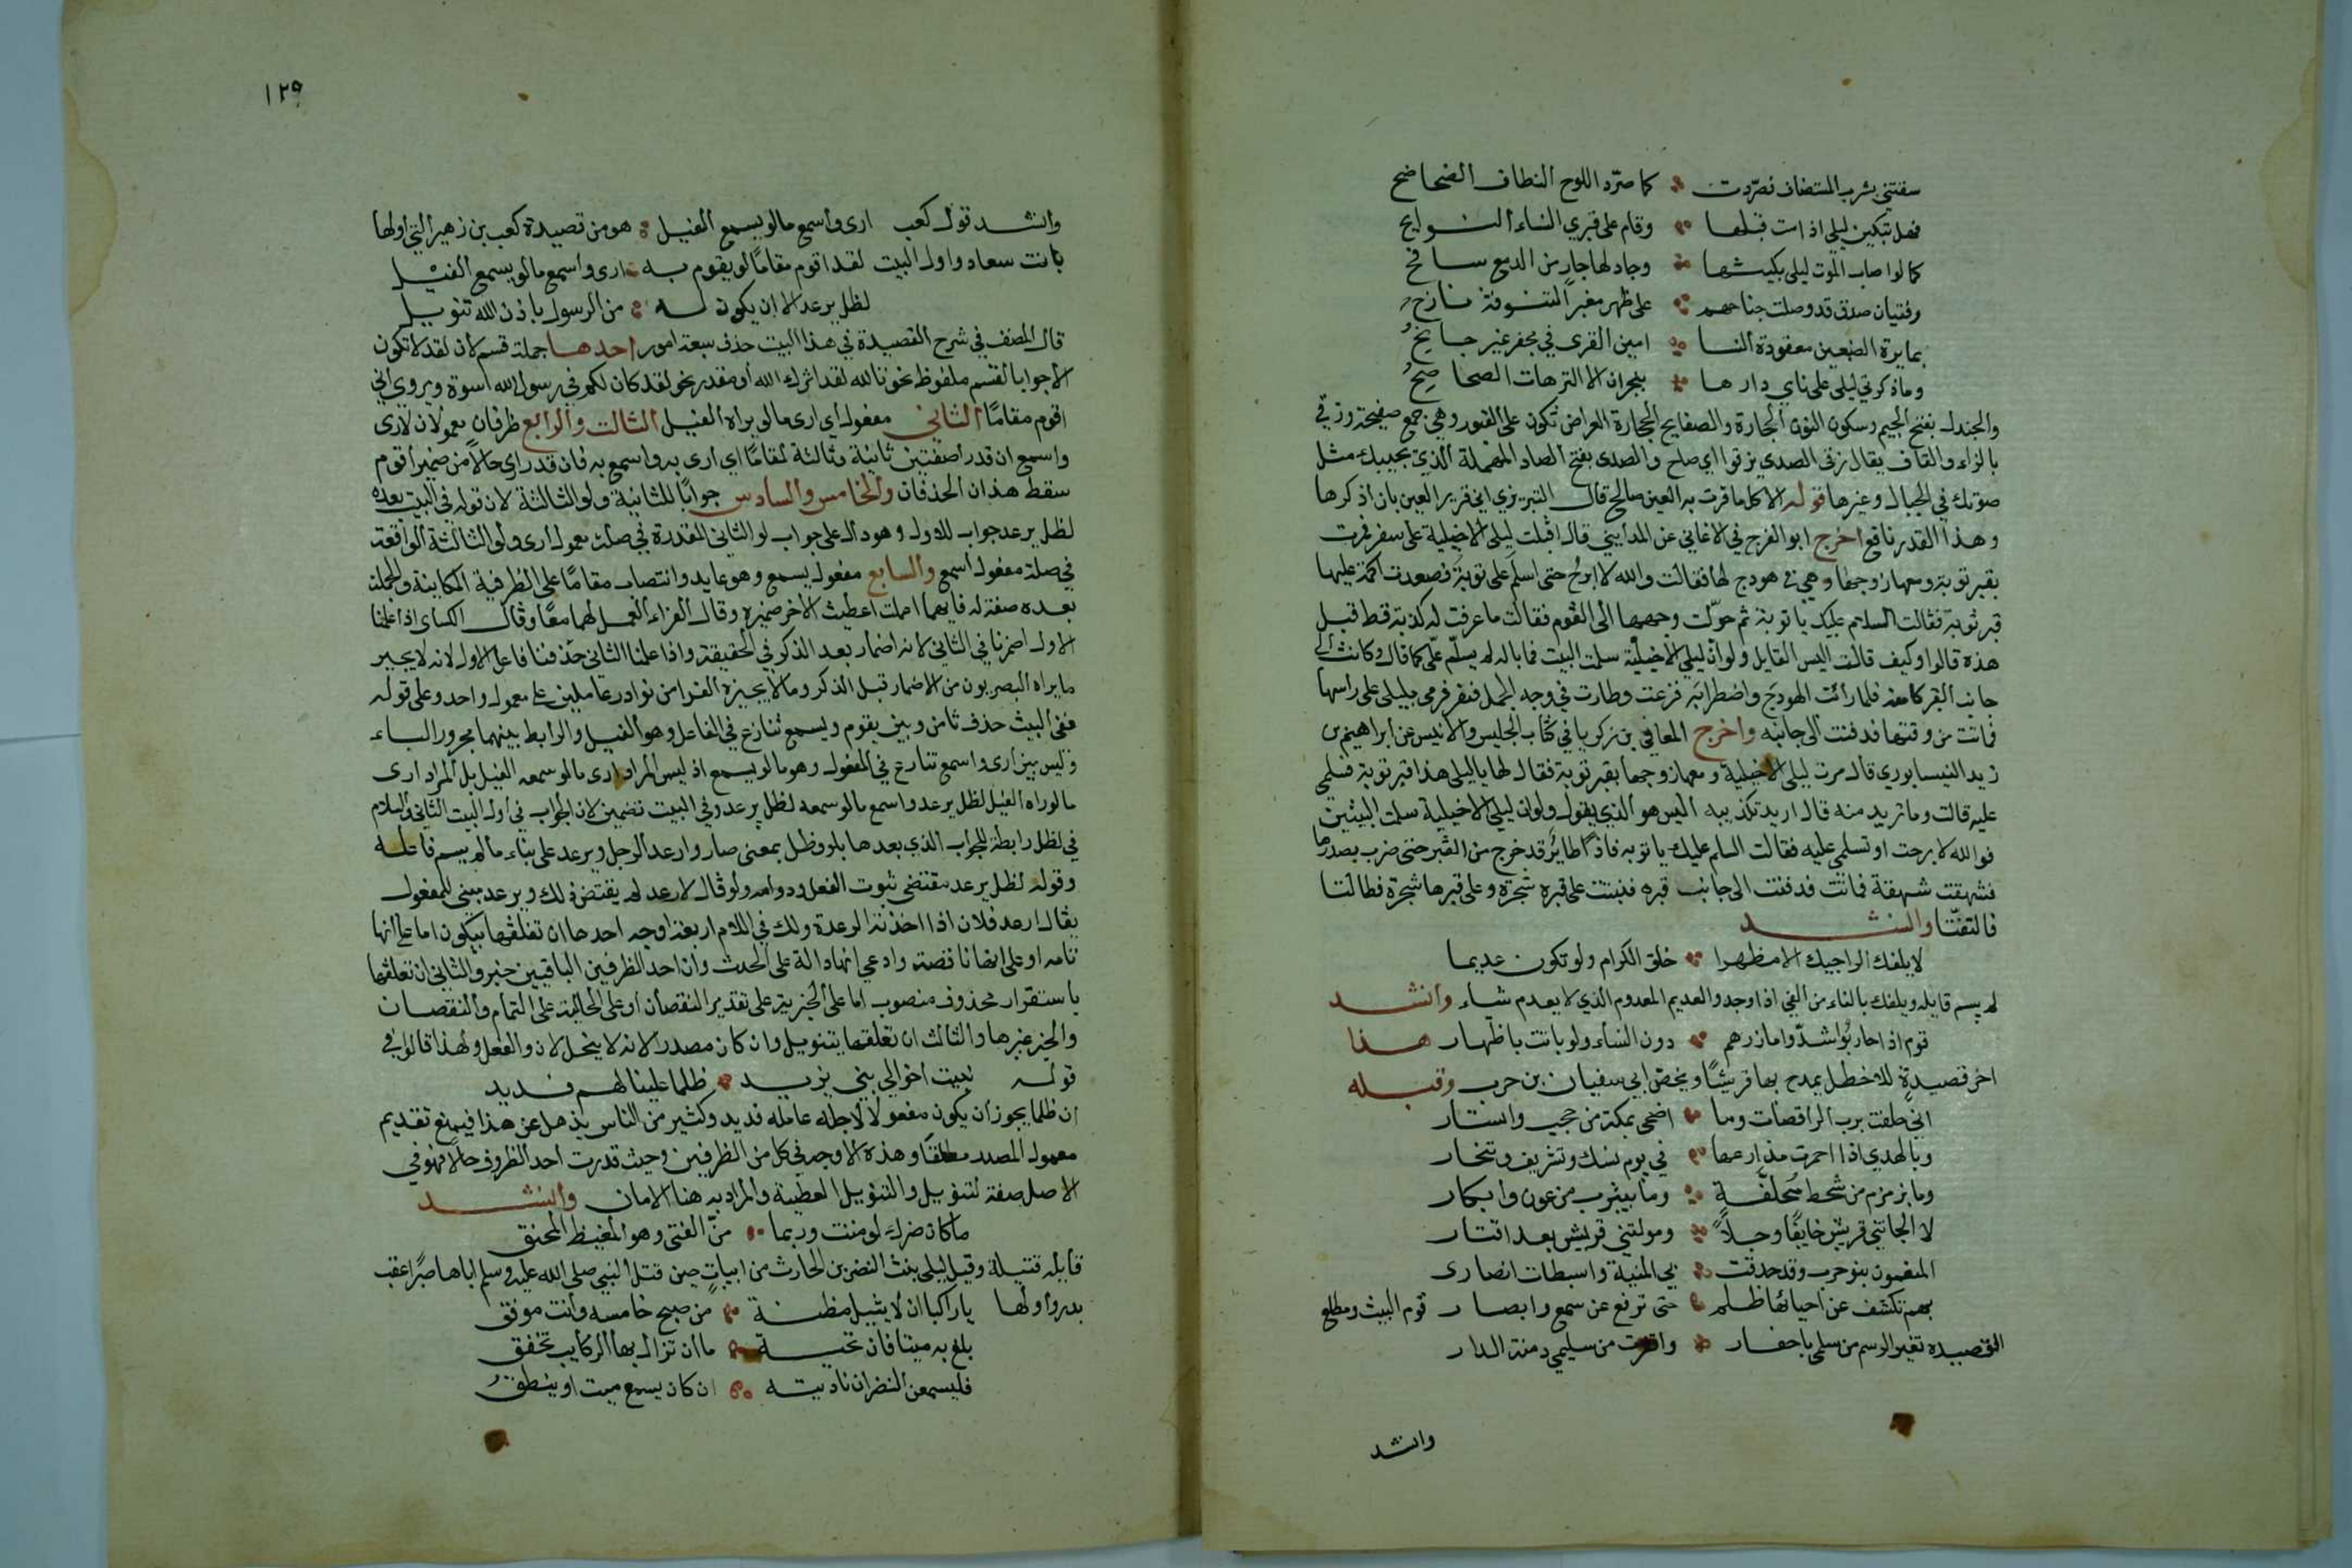 سقتني بشرب المستضاف فصرّدت ∴ كما صرّد اللوح النطاف الضحاضح
فهل تبكين ليلى اذا مت قبلها ∴ وقام على قبري النساء النوايح
كما لو اصاب الموت ليلى بكيتها ∴ وجاد لها جار من الدمع سافح
وفتيان صدق قد وصلت جناحهم ∴ على ظهر مغبر التنوفة نازح
بمايرة الضبعين معقودة النسا ∴ امين القرى في مجفر غير جايح
وما ذكرتي ليلى على ناي دارها ∴ بنجران الا الترهات الصحاصح
والجندل بفتح الجيم وسكون النون الحجارة والصفايح الحجارة العراض تكون على القبور وهي جمع صفيحة وزقى
بالزاء والقاف يقال زقى الصدى يزقوا اي صاح والصدى بفتح الصاد المهملة الذي يجيبك مثل
صوتك في الجبال وغيرها قوله الا كلما قرت به العين صالح قال التبريزي اي قرير العين بان اذكرها
وهذا القدر نافع اخرج ابو الفرج في الاغاني عن المدايني قال اقبلت ليلى الاخيلية على سفر فمرت
بقبر توبة ومعها زوجها وهي في هودج لها فقالت والله لا ابرح حتى اسلم على توبة فصعدت اكمة عليها
قبر توبة فقالت السلام عليك يا توبة ثم حوّلت وجهها الى القوم فقالت ما عرفت له كذبة قط قبل
هذه قالوا وكيف قالت اليس القايل ولو ان ليلى الاخيلية سلمت البيت فما باله لم يسلّم علّى كما قال وكانت الى
جانب القبر كامنة فلما رات الهودج واضطرابه فزعت وطارت في وجه الجمل فنفر فرمى بليلى على راسها
فماتت من وقتها فدفنت الى جانبه واخرج المعافي بن زكريا في كتاب الجليس والانيس عن ابراهيم بن
زيد النيسابوري قال مرت ليلى الاخيلية ومعها زوجها بقبر توبة فقال لها يا ليلى هذا قبر توبة فسلمي
عليه قالت وما تريد منه قال اريد تكذيبه اليس هو الذي يقول ولو ان ليلى الاخيلية سلمت البيتين
فوالله لا برحت او تسلمي عليه فقالت السلم عليك يا توبه فاذا طاير قد خرج من القبر حتى ضرب بصدرها
فشهقت شهقة فماتت فدفنت الى جانب قبره فنبتت على قبره شجرة وعلى قبرها شجرة فطالتا
فالتفتا وانشد
لا يلفك الراجيك الا مظهرا ∴ خلق الكرام ولو تكون عديما
لم يسم قايله ويلفك بالفاء من الفي اذا وجد والعديم المعدوم الذي لا يعدم شاء وانشد
قوم اذا حاربوا شدّوا مازرهم ∴ دون النساء ولو باتت باطهار هذا
اخر قصيدة للاخطل يمدح بها قريشًا ويخص ابي سفيان بن حرب وقبله
اني حلفت برب الراقصات وما ∴ اضحى بمكة من حجب واستار
وبالهدي اذا احمرت مذارعها ∴ في يوم نسك وتشريف وتنحار
وما بزمزم من شحط محلقة ∴ وما بيثرب من عون وابكار
لا الجاتني قريش خايفًا وجلاً ∴ ومولتني قريش بعد اقتار
المنعمون بنو حرب وقد حدقت ∴ بي المنية واستبطات انصارى
بهم تكشف عن احيائها ظلم ∴ حتى ترفع عن سمع وابصار قوم البيت ومطلع
القصيدة تغير الرسم من سلمى باحفار ∴ واقفرت من سليمى دمنة الدار
وانشد
١٢٩
وانشد قول كعب ارى واسمع ما لو يسمع الفيل ∴ هو من قصيدة كعب بن زهير التي اولها
بانت سعاد واول البيت لقد اقوم مقامًا لو يقوم به ∴ ارى واسمع ما لو يسمع الفيل
لظل يرعد الا ان يكون له ∴ من الرسول باذن الله تنويل
قال المصنف في شرح القصيدة في هذا البيت حذف سبعة امور احدها جملة قسم لان لقد لا تكون
الا جوابا لقسم ملفوظ نحو تالله لقد اثرك الله او مقدر نحو لقد كان لكم في رسول الله اسوة ويروى اني
اقوم مقامًا الثاني مفعول اي ارى ما لو يراه الفيل الثالث والرابع ظرفان معمولان لارى
واسمع ان قدر اصفتين ثانية وثالثة لمقامًا اي ارى به واسمع به فان قدر اي حالاً من ضمير اقوم
سقط هذان الحذفان والخامس والسادس جوابًا للثانية ولو الثالثة لان قوله في البيت بعده
لظل يرعد جواب للاول وهو دال على جواب لو الثاني المقدرة في صلة معمول ارى ولو الثالثة الواقعة
في صلة مفعول اسمع والسابع مفعول يسمع وهو عايد وانتصاب مقامًا على الظرفية المكانية والجملة
بعده صفة له فايهما اعملت اعطيت الاخر ضميره وقال الفراء العمل لهما معًا وقال الكساى اذا اعملنا
الاول اضمرنا في الثاني لانه اضمار بعد الذكر في الحقيقة واذا اعملنا الثاني حذفنا فاعل الاول لانه لا يجيز
ما يراه البصريون من الاضمار قبل الذكر وما لا يجيزه الفرا من توادر عاملين على معمول واحد وعلى قوله
ففي البيت حذف ثامن وبين يقوم ويسمع تنازع في الفاعل وهو الفيل والرابط بينهما مجرور الباء
وليس بين ارى واسمع تنازع في المفعول وهو ما لو يسمع اذ ليس المراد ارى ما لو سمعه الفيل بل المراد ارى
ما لو راه الفيل لظل يرعد واسمع ما لو سمعه لظل يرعد وفي البيت تضمين لان الجواب في اول البيت الثاني واللام
في لظل رابطة للجواب الذي بعدها بلو وظل بمعنى صار وارعد الرجل ويرعد على بناء ما لم يسم فاعله
وقوله لظل يرعد مقتضى ثبوت الفعل ودوامه ولو قال لارعد لم يقتض ذلك ويرعد مبني للمفعول
يقال ارعد فلان اذا اخذته الرعدة ولك في اللام اربعة اوجه احدها ان تعلقها بيكون اما على انها
تامه او على انها ناقصة وادعي انها دالة على الحدث وان احد الظرفين الباقيين خبر والثاني ان تعلقها
باستقرار محذوف منصوب اما على الخبرية على تقدير النقصان او على الحالية على التمام والنقصان
والخبر غيرها والثالث ان تعلقها بتنويل وان كان مصدرا لانه لا ينحل لان والفعل ولهذا قالوا في
قوله نبيت اخوالي بني يزيد ∴ ظلما علينا لهم فديد
ان ظلما يجوز ان يكون مفعولا لاجله عامله فديد وكثير من الناس يذهل عن هذا فيمنع تقديم
معمول المصدر مطلقًا وهذه الاوجه في كل من الظرفين وحيث قدرت احد الظروف حالاً فهو في
الاصل صفة لتنويل والتنويل العطية والمراد به هنا الامان وانشد
ما كان ضرك لو مننت وربما ∴ منّ الفتى وهو المغيظ المحنق
قايله قتيلة وقيل ليلى بنت النضر بن الحارث من ابيات حين قتل النبي صلى الله عليه وسلم اباها صبرًا عقب
بدر واولها يا راكبا ان لا يثيل مظنة ∴ من صبح خامسه وانت موفق
بلغ به ميتا فان تحية ∴ ما ان تزال بها الركايب تخفق
فليسمعن النضر ان ناديته ∴ ان كان يسمع ميت او ينطق